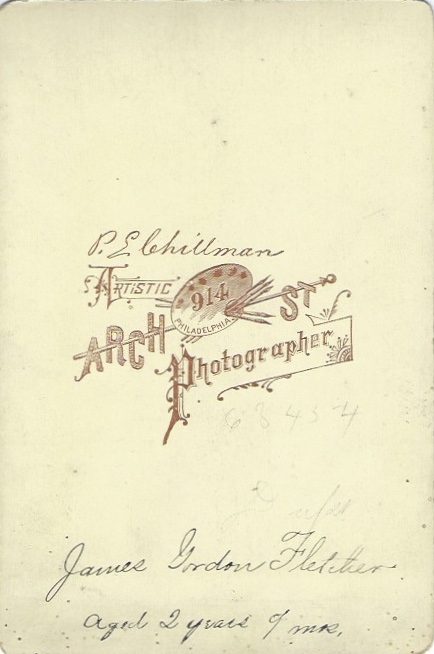 P. E. Chillman
ARTISTIC
914
PHILADELPHIA
ARCH ST
Photographer
68434
James Gordon Fletcher
aged 2 years 9 mos.